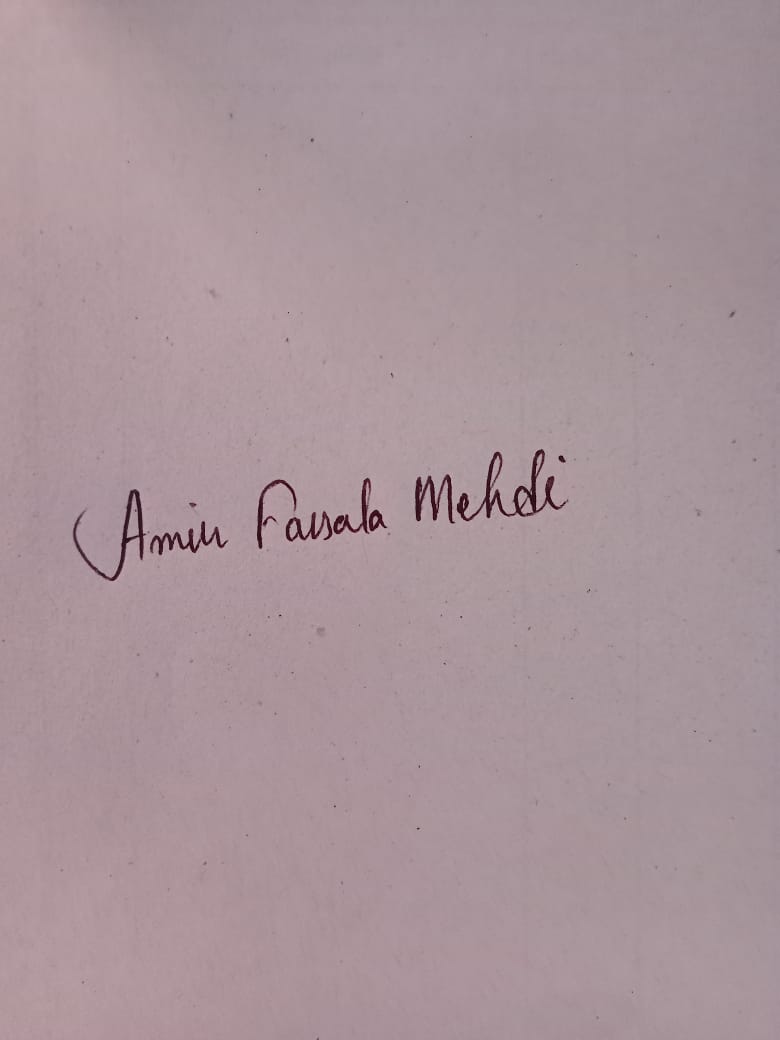 Amin Faisala Mehdi